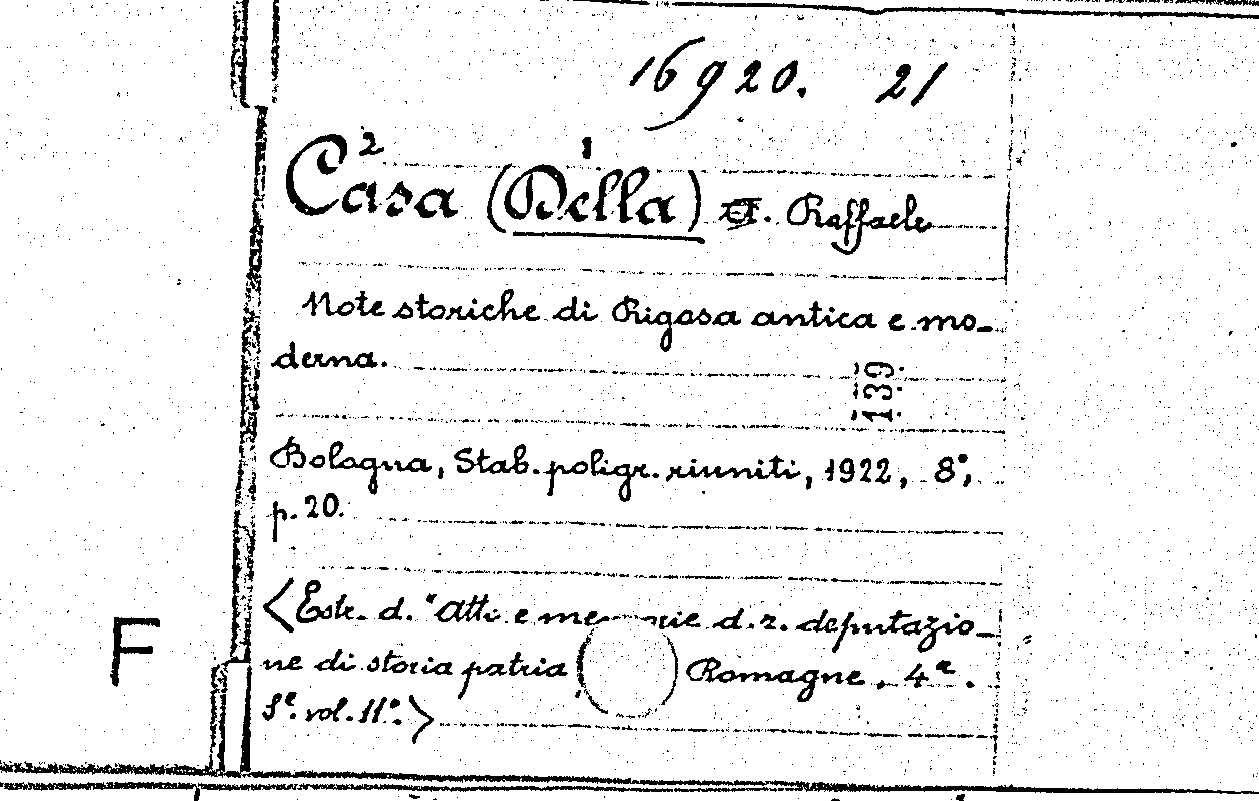 16920. 21
2 1
Casa (Della) Raffaele
Note storiche di Rigosa antica e mo-
derna.
139.
Bologna, Stab. poligr. riuniti, 1922, 8°,
p. 20.
<Estr. d. "Atti e me rie d. r. deputazio-
ne di storia patria Romagne, 4ª.
Sᵉ. vol. 11°.>
F